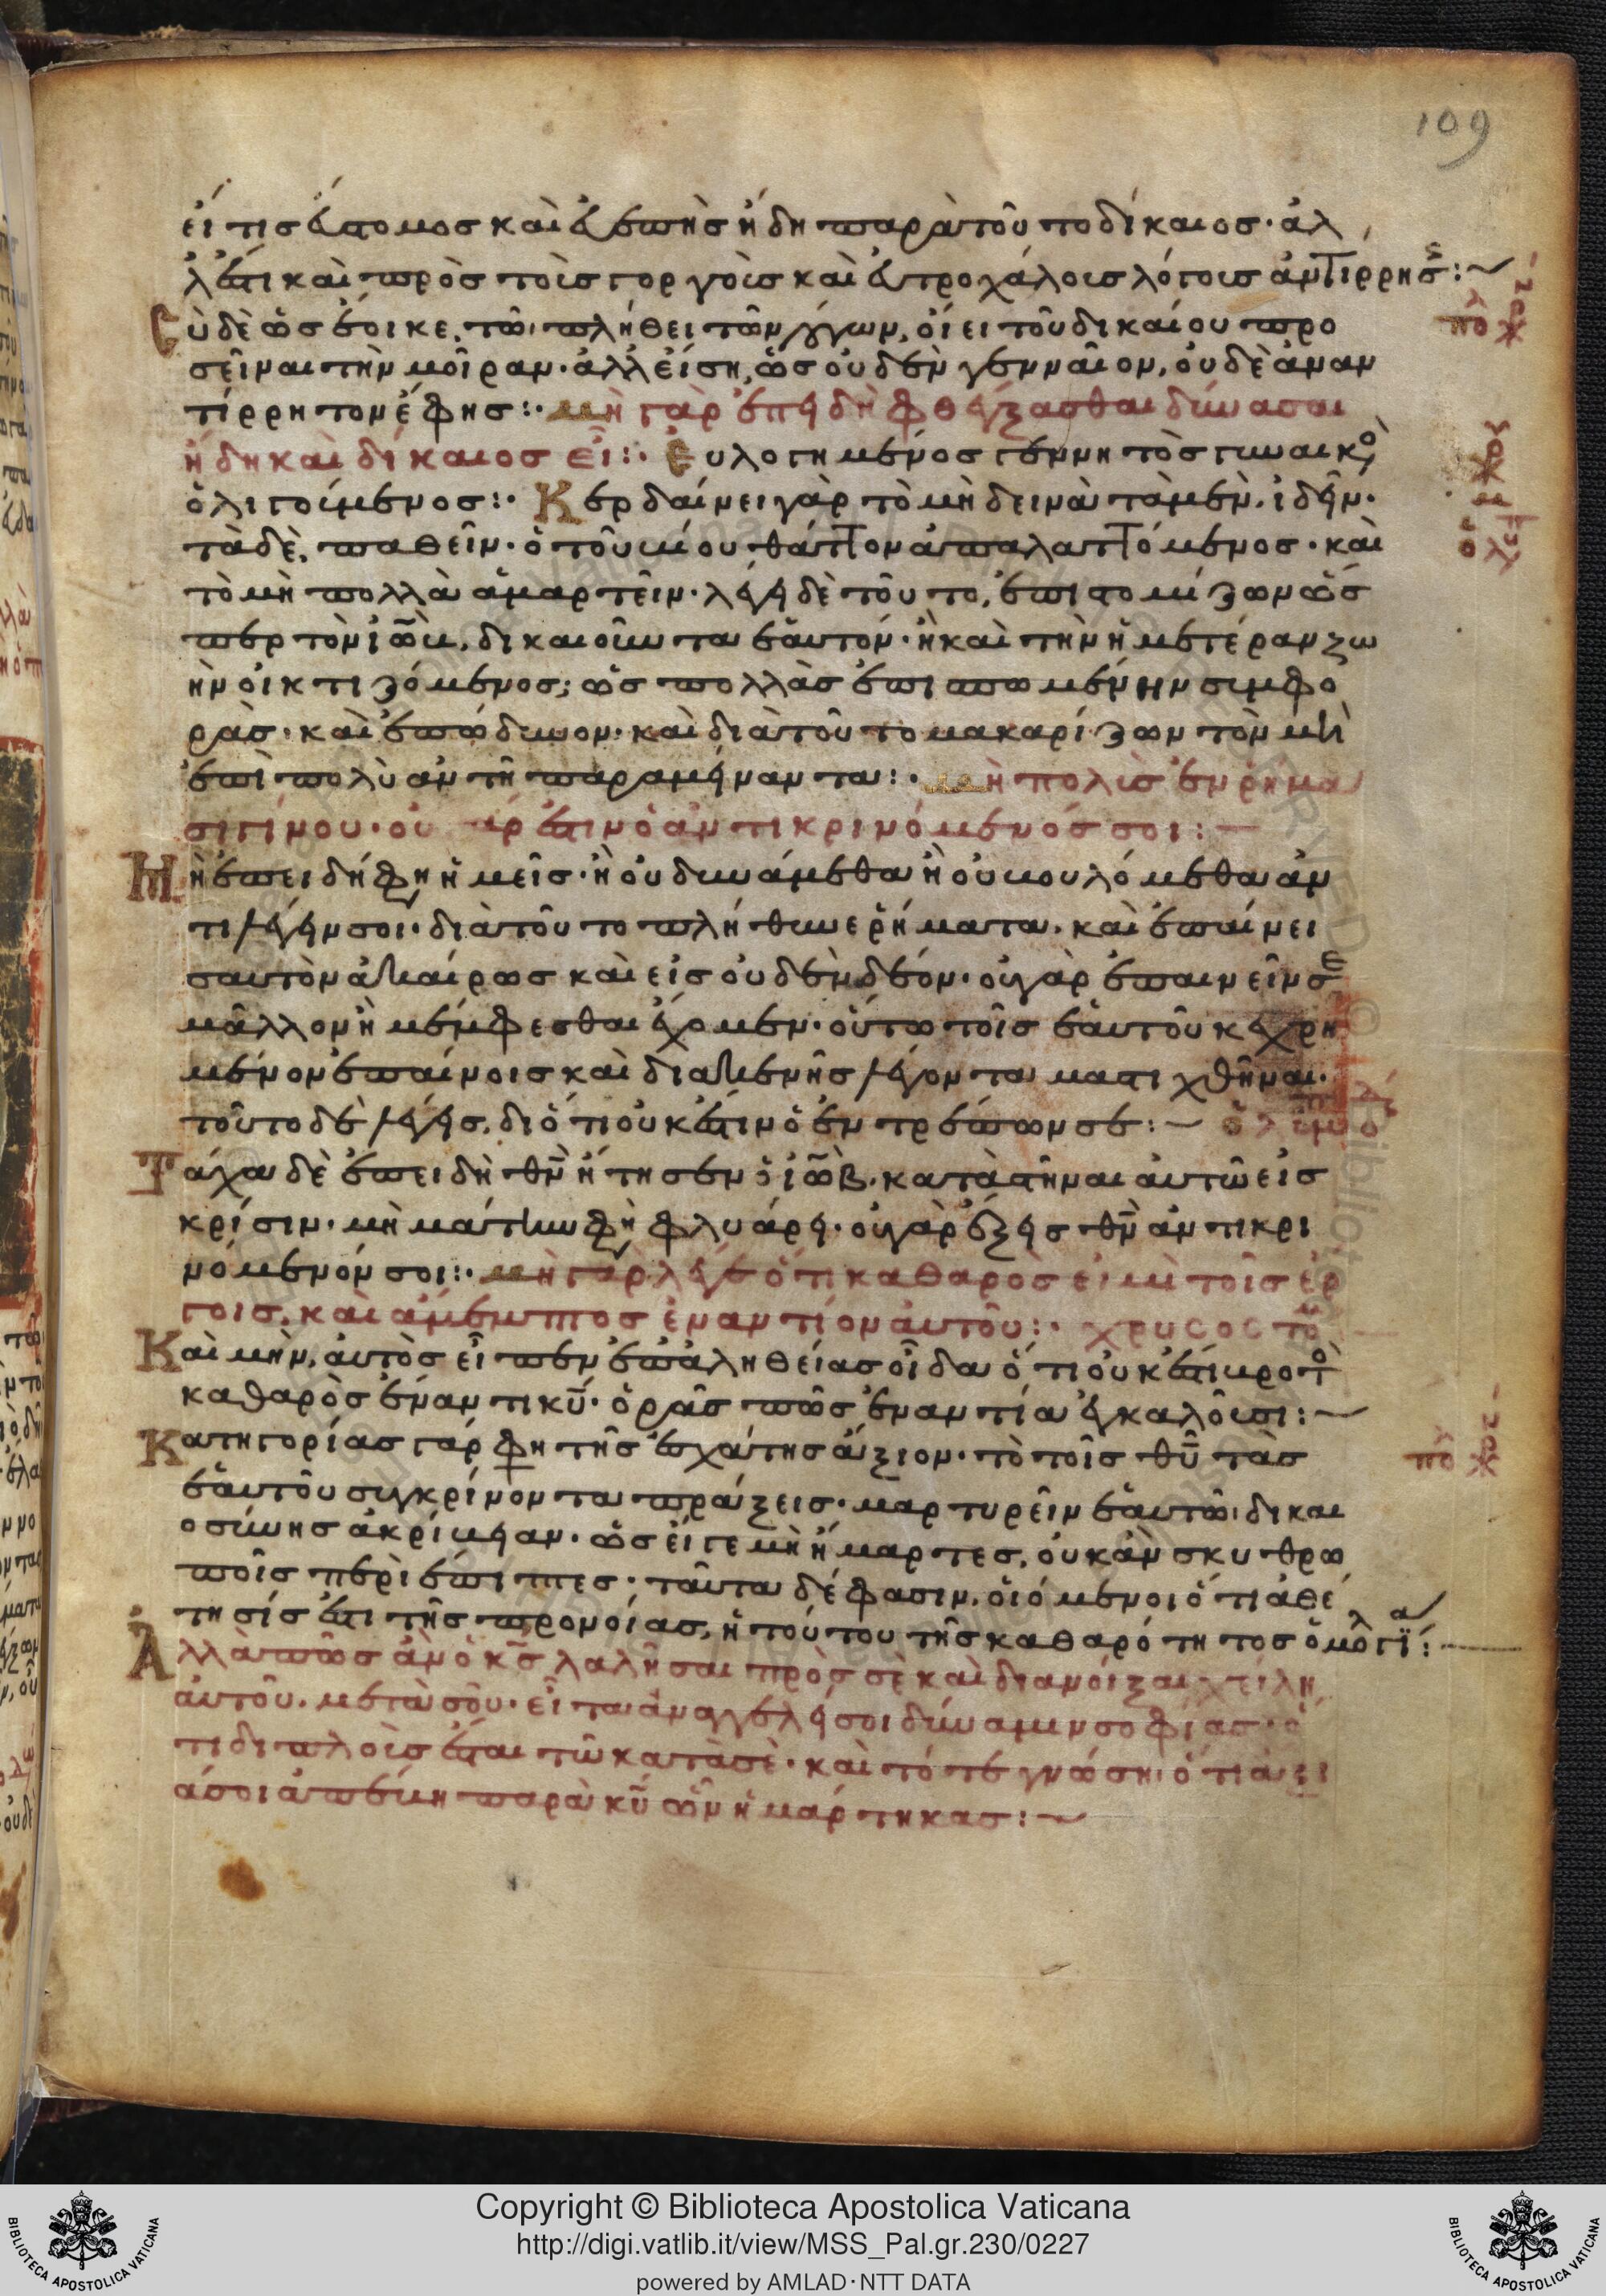 109
εἴ τις εὔστομος καὶ εὐεπὴς ἤδη παρὰ τοῦτο δίκαιος· ἀλ
λ' ἔστι καὶ πρὸς τοῖς γοργοῖς καὶ εὐτροχάλοις λόγοις ἀντίρρησις:~
Σὺ δὲ ὡς ἔοικε, τῶ πλήθει τῶν λόγων, οἴει τοῦ δικαίου προ
σεῖναι τὴν μοῖραν· ἀλλ' εἴση, ὡς οὐδὲν γενναῖον, οὐδὲ ἀναν
τίρρητον ἔφης:· μὴ γὰρ ἐπειδὴ φθέγξασθαι δύνασαι
ἤδη καὶ δίκαιος εἶ:· Εὐλογημένος γεννητὸς γυναικὸς
ὀλιγοίμενος:· Κερδαίνει γὰρ τὸ μὴ δεινὰ τὰ μὲν, ἰδεῖν·
τὰ δὲ, παθεῖν· ὁ τοῦ βίου θᾶττον ἀπαλαττόμενος· καὶ
τὸ μὴ πολλὰ ἁμαρτεῖν· λέγει δὲ τοῦτο, ἐπιστομίζων ὥσ
περ τὸν ἰὼβ, δικαιοῦντα ἑαυτόν· ἢ καὶ τὴν ἡμετέραν ζω
ὴν οἰκτιζόμενος· ὡς πολλὰς ἐπισπωμένην συμφο
ράς· καὶ ἐπώδυνον· καὶ διὰ τοῦτο μακαρίζων τὸν μὴ
ἐπὶ πολὺ αὐτῆ παραμείναντα:· μὴ πολὺς ἐν ῥήμα
σι γίνου· οὐ γάρ ἐστιν ὁ ἀντικρινόμενός σοι:~
Μὴ ἐπειδή φη ἡμεῖς· ἢ οὐ δυνάμεθα ἢ οὐ βουλόμεθα ἀν
τιλέγειν σοι· διὰ τοῦτο πλήθυνε ῥήματα· καὶ ἐπαίνει
σαυτὸν ἀκαίρως καὶ εἰς οὐδὲν δέον· οὐ γὰρ ἐπαινεῖν σε
μᾶλλον ἢ μέμφεσθαι ἔχομεν· οὕτω τοῖς ἑαυτοῦ κεχρη
μένον ἐπαίνοις καὶ διακενῆς λέγοντα μαστιχθῆναι·
τοῦτο δὲ λέγεις, διότι οὐκ ἔστιν ὁ ἐντρέπων σε:~ ὀλυμπιο
Τάχα δὲ ἐπειδὴ θν ἤτησεν ὁ ἰὼβ, καταστῆναι αὐτῶ εἰς
κρίσιν· μὴ μάτην φη φλυάρει· οὐ γὰρ ἕξεις θν ἀντικρι
νόμενόν σοι:· μὴ γὰρ λέγε ὅτι καθαρὸς εἰμὶ τοῖς ἔρ
γοις, καὶ ἄμεμπτος ἐναντίον αὐτοῦ:· χρυσοστο
Καὶ μὴν, αὐτὸς εἶπεν ἐπ' ἀληθείας οἶδα ὅτι οὐκ ἔστι βροτὸς
καθαρὸς ἐναντι κυ· ὁρᾶς πῶς ἐναντία ἐγκαλοῦσι:~
Κατηγορίας γάρ φη τῆς ἐσχάτης ἄξιον· τὸ τοῖς θυ τὰς
ἑαυτοῦ συγκρίνοντα πράξεις· μαρτυρεῖν ἑαυτῶ, δικαι
οσύνης ἀκρίβειαν· ὡς εἴγε μὴ ἥμαρτες, οὐκ ἂν σκυθρω
ποῖς περιέπιπτες· ταῦτα δέ φασιν, οἰόμενοι ὅτι ἀθέ
τησίς ἐστι τῆς προνοίας, ἡ τούτου τῆς καθαρότητος ὁμολογία:~
Ἀλλὰ πῶς ἂν ὁ κς λαλῆσαι πρὸς σὲ καὶ διανοίξαι χείλη
αὐτοῦ, μετὰ σοῦ· εἶτα ἀναγγελεῖ σοι δύναμιν σοφίας· ὅ
τι διπλοῖς ἔσται τῶ κατὰ σὲ· καὶ τότε γνώση, ὅτι ἄξι
ά σοι ἀπέβη παρὰ κυ ὧν ἡμάρτηκας:~
Copyright © Biblioteca Apostolica Vaticana
http://digi.vatlib.it/view/MSS_Pal.gr.230/0227
powered by AMLAD·NTT DATA
BIBLIOTECA APOSTOLICA VATICANA
BIBLIOTECA APOSTOLICA VATICANA